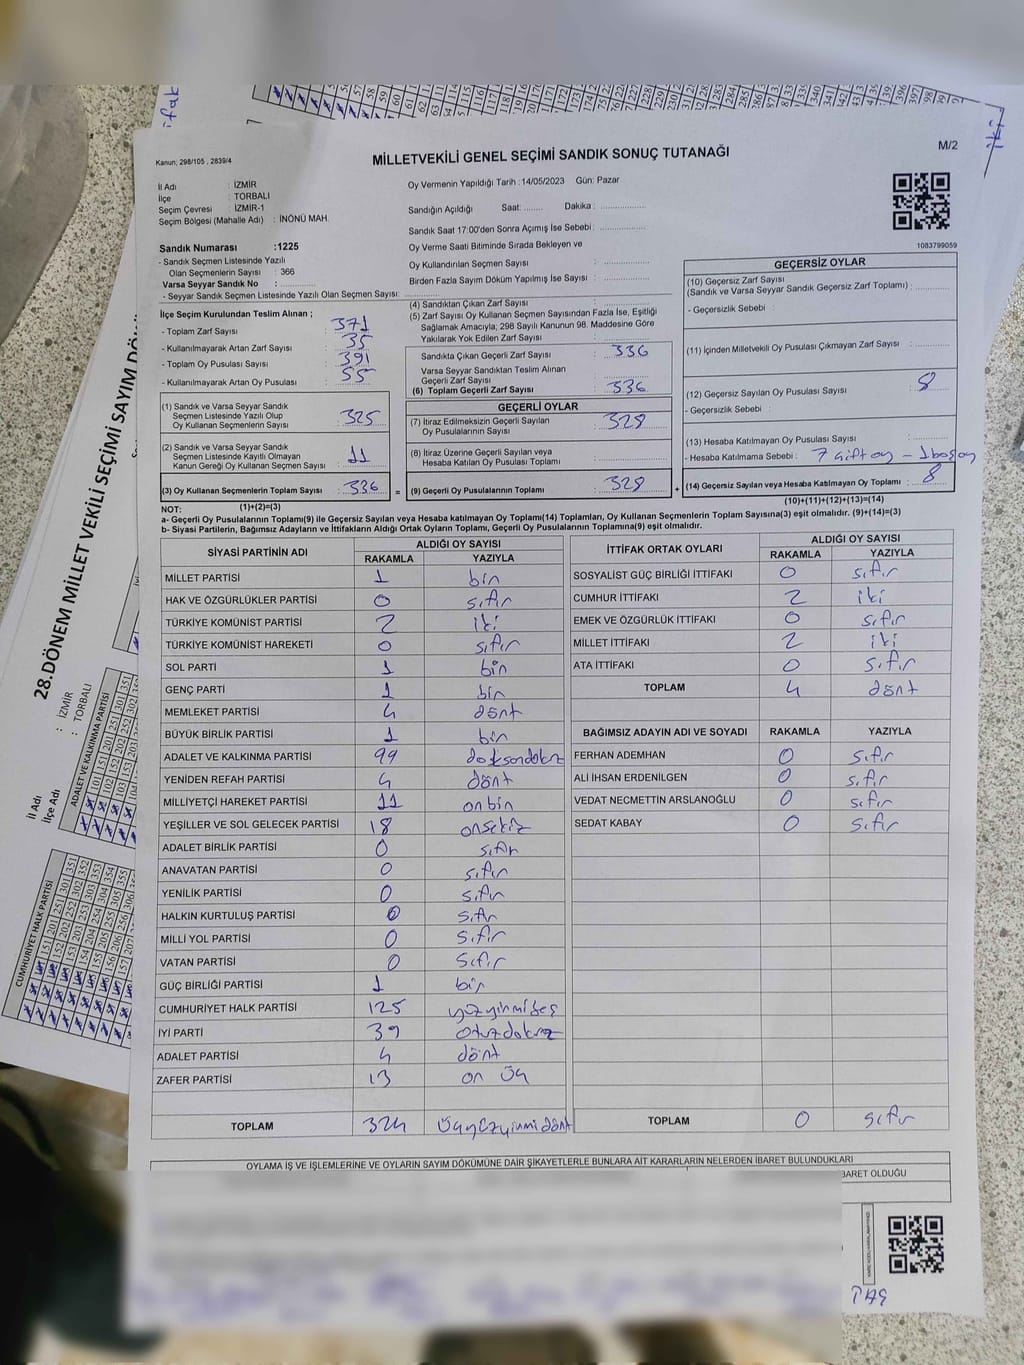 Kanun; 298/105 , 2839/4
MİLLETVEKİLİ GENEL SEÇİMİ SANDIK SONUÇ TUTANAĞI
M/2
İl Adı : İZMİR
İlçe : TORBALI
Seçim Çevresi : İZMİR-1
Seçim Bölgesi (Mahalle Adı) : İNÖNÜ MAH.
Sandık Numarası :1225
- Sandık Seçmen Listesinde Yazılı
Olan Seçmenlerin Sayısı : 366
Varsa Seyyar Sandık No :
- Seyyar Sandık Seçmen Listesinde Yazılı Olan Seçmen Sayısı:
Oy Vermenin Yapıldığı Tarih : 14/05/2023 Gün: Pazar
Sandığın Açıldığı Saat: Dakika :
Sandık Saat 17:00'den Sonra Açımış İse Sebebi :
Oy Verme Saati Bitiminde Sırada Bekleyen ve
Oy Kullandırılan Seçmen Sayısı :
Birden Fazla Sayım Döküm Yapılmış İse Sayısı :
1083799059
İlçe Seçim Kurulundan Teslim Alınan ;
- Toplam Zarf Sayısı : 371
- Kullanılmayarak Artan Zarf Sayısı : 35
- Toplam Oy Pusulası Sayısı : 391
- Kullanılmayarak Artan Oy Pusulası : 55
(1) Sandık ve Varsa Seyyar Sandık
Seçmen Listesinde Yazılı Olup
Oy Kullanan Seçmenlerin Sayısı : 325
(2) Sandık ve Varsa Seyyar Sandık
Seçmen Listesinde Kayıtlı Olmayan
Kanun Gereği Oy Kullanan Seçmen Sayısı : 11
(3) Oy Kullanan Seçmenlerin Toplam Sayısı : 336 =
(4) Sandıktan Çıkan Zarf Sayısı :
(5) Zarf Sayısı Oy Kullanan Seçmen Sayısından Fazla İse, Eşitliği
Sağlamak Amacıyla; 298 Sayılı Kanunun 98. Maddesine Göre
Yakılarak Yok Edilen Zarf Sayısı :
Sandıkta Çıkan Geçerli Zarf Sayısı : 336
Varsa Seyyar Sandıktan Teslim Alınan
Geçerli Zarf Sayısı :
(6) Toplam Geçerli Zarf Sayısı : 336
GEÇERLİ OYLAR
(7) İtiraz Edilmeksizin Geçerli Sayılan
Oy Pusulalarının Sayısı : 328
(8) İtiraz Üzerine Geçerli Sayılan veya
Hesaba Katılan Oy Pusulası Toplamı :
(9) Geçerli Oy Pusulalarının Toplamı : 328 +
GEÇERSİZ OYLAR
(10) Geçersiz Zarf Sayısı
(Sandık ve Varsa Seyyar Sandık Geçersiz Zarf Toplamı) :
- Geçersizlik Sebebi
(11) İçinden Milletvekili Oy Pusulası Çıkmayan Zarf Sayısı :
(12) Geçersiz Sayılan Oy Pusulası Sayısı : 8
- Geçersizlik Sebebi :
(13) Hesaba Katılmayan Oy Pusulası Sayısı :
- Hesaba Katılmama Sebebi : 7 çift oy - 1 boş oy
(14) Geçersiz Sayılan veya Hesaba Katılmayan Oy Toplamı : 8
NOT: (1)+(2)=(3) (10)+(11)+(12)+(13)=(14)
a- Geçerli Oy Pusulaları Toplamı(9) ile Geçersiz Sayılan veya Hesaba katılmayan Oy Toplamı(14) Toplamları, Oy Kullanan Seçmenlerin Toplam Sayısına(3) eşit olmalıdır. (9)+(14)=(3)
b- Siyasi Partilerin, Bağımsız Adayların ve İttifakların Aldığı Ortak Oyların Toplamı, Geçerli Oy Pusulalarının Toplamına(9) eşit olmalıdır.
SİYASİ PARTİNİN ADI ALDIĞI OY SAYISI
RAKAMLA YAZIYLA
MİLLET PARTİSİ 1 bir
HAK VE ÖZGÜRLÜKLER PARTİSİ 0 sıfır
TÜRKİYE KOMÜNİST PARTİSİ 2 iki
TÜRKİYE KOMÜNİST HAREKETİ 0 sıfır
SOL PARTİ 1 bir
GENÇ PARTİ 1 bir
MEMLEKET PARTİSİ 4 dört
BÜYÜK BİRLİK PARTİSİ 1 bir
ADALET VE KALKINMA PARTİSİ 99 doksandokuz
YENİDEN REFAH PARTİSİ 4 dört
MİLLİYETÇİ HAREKET PARTİSİ 11 onbir
YEŞİLLER VE SOL GELECEK PARTİSİ 18 onsekiz
ADALET BİRLİK PARTİSİ 0 sıfır
ANAVATAN PARTİSİ 0 sıfır
YENİLİK PARTİSİ 0 sıfır
HALKIN KURTULUŞ PARTİSİ 0 sıfır
MİLLİ YOL PARTİSİ 0 sıfır
VATAN PARTİSİ 0 sıfır
GÜÇ BİRLİĞİ PARTİSİ 1 bir
CUMHURİYET HALK PARTİSİ 125 yüzyirmibeş
İYİ PARTİ 39 otuzdokuz
ADALET PARTİSİ 4 dört
ZAFER PARTİSİ 13 on üç
TOPLAM 324 üçyüzyirmidört
İTTİFAK ORTAK OYLARI ALDIĞI OY SAYISI
RAKAMLA YAZIYLA
SOSYALİST GÜÇ BİRLİĞİ İTTİFAKI 0 sıfır
CUMHUR İTTİFAKI 2 iki
EMEK VE ÖZGÜRLÜK İTTİFAKI 0 sıfır
MİLLET İTTİFAKI 2 iki
ATA İTTİFAKI 0 sıfır
TOPLAM 4 dört
BAĞIMSIZ ADAYIN ADI VE SOYADI RAKAMLA YAZIYLA
FERHAN ADEMHAN 0 sıfır
ALİ İHSAN ERDENİLGEN 0 sıfır
VEDAT NECMETTİN ARSLANOĞLU 0 sıfır
SEDAT KABAY 0 sıfır
TOPLAM 0 sıfır
OYLAMA İŞ VE İŞLEMLERİNE VE OYLARIN SAYIM DÖKÜMÜNE DAİR ŞİKAYETLERLE BUNLARA AİT KARARLARIN NELERDEN İBARET BULUNDUKLARI
BARET OLDUĞU
28.DÖNEM MİLLET VEKİLİ SEÇİMİ SAYIM DÖK
İl Adı : İZMİR
İlçe Adı : TORBALI
ADALET VE KALKINMA PARTİSİ
CUMHURİYET HALK PARTİSİ